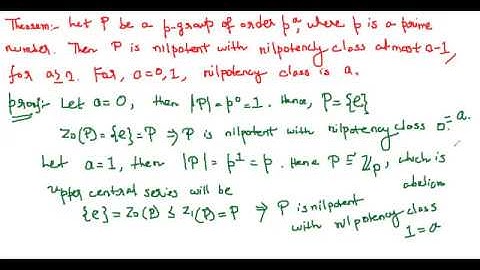 Theorem:- Let P be a p-group of order p^a, where p is a prime
number. Then P is nilpotent with nilpotency class atmost a-1,
for a≥2. For, a=0,1, nilpotency class is a.
proof:- Let a=0, then |P|=p^0=1. Hence, P={e}
Z_0(P)={e}=P ⇒ P is nilpotent with nilpotency class 0=a.
Let a=1, then |P|=p^1=p. Hence P ≅ ℤ_p, which is
abelian
upper central series will be
{e}=Z_0(P) ≤ Z_1(P)=P ⇒ P is nilpotent
with nilpotency class
1=a